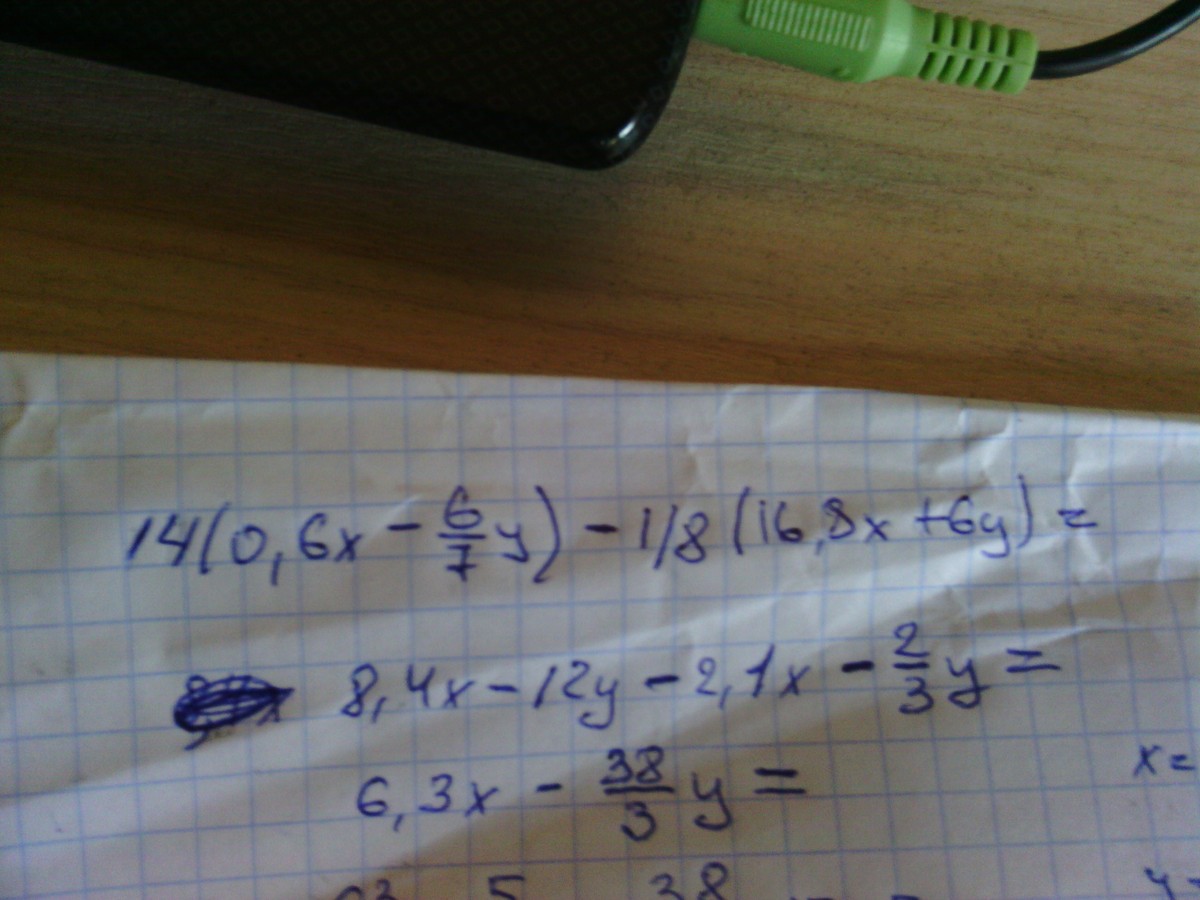 14(0,6x - 6/7 y) - 1/8 (16,8x + 6y) =
8,4x - 12y - 2,1x - 2/3 y =
6,3x - 38/3 y =
x =